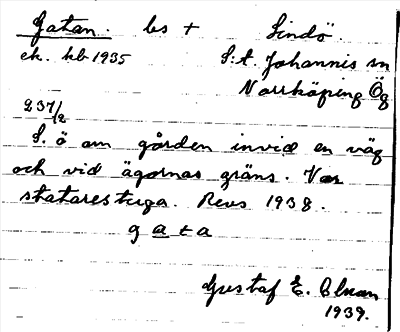 Gatan. bs + Sindö.
ek. kb 1935 S:t. Johannis sn
Norrköping Ög
237/2
S. ö om gården invid en väg
och vid ägornas gräns. Var
statarestuga. Revs 1938.
g a t a
Gustaf E.
1939.